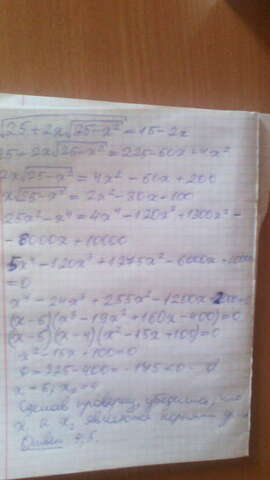 √25+2x√25-x² = 15-2x
25+2x√25-x² = 225-60x+4x²
2x√25-x² = 4x²-60x+200
x√25-x² = 2x²-30x+100
25x²-x⁴=4x⁴-120x³+1300x²-
-6000x+10000
5x⁴-120x³+1275x²-6000x+10000
=0
x⁴-24x³+255x²-1200x+2000=0
(x-5)(x³-19x²+160x-400)=0
(x-5)(x-4)(x²-15x+100)=0
x²-15x+100=0
D=225-400=-175<0
x=5, x₂=4
Сделав проверку, убедимся, что
x₁ и x₂ являются корнями
Ответ 4,5.